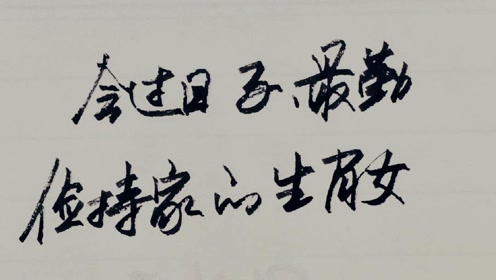 会过日子、最勤
俭持家的生肖女